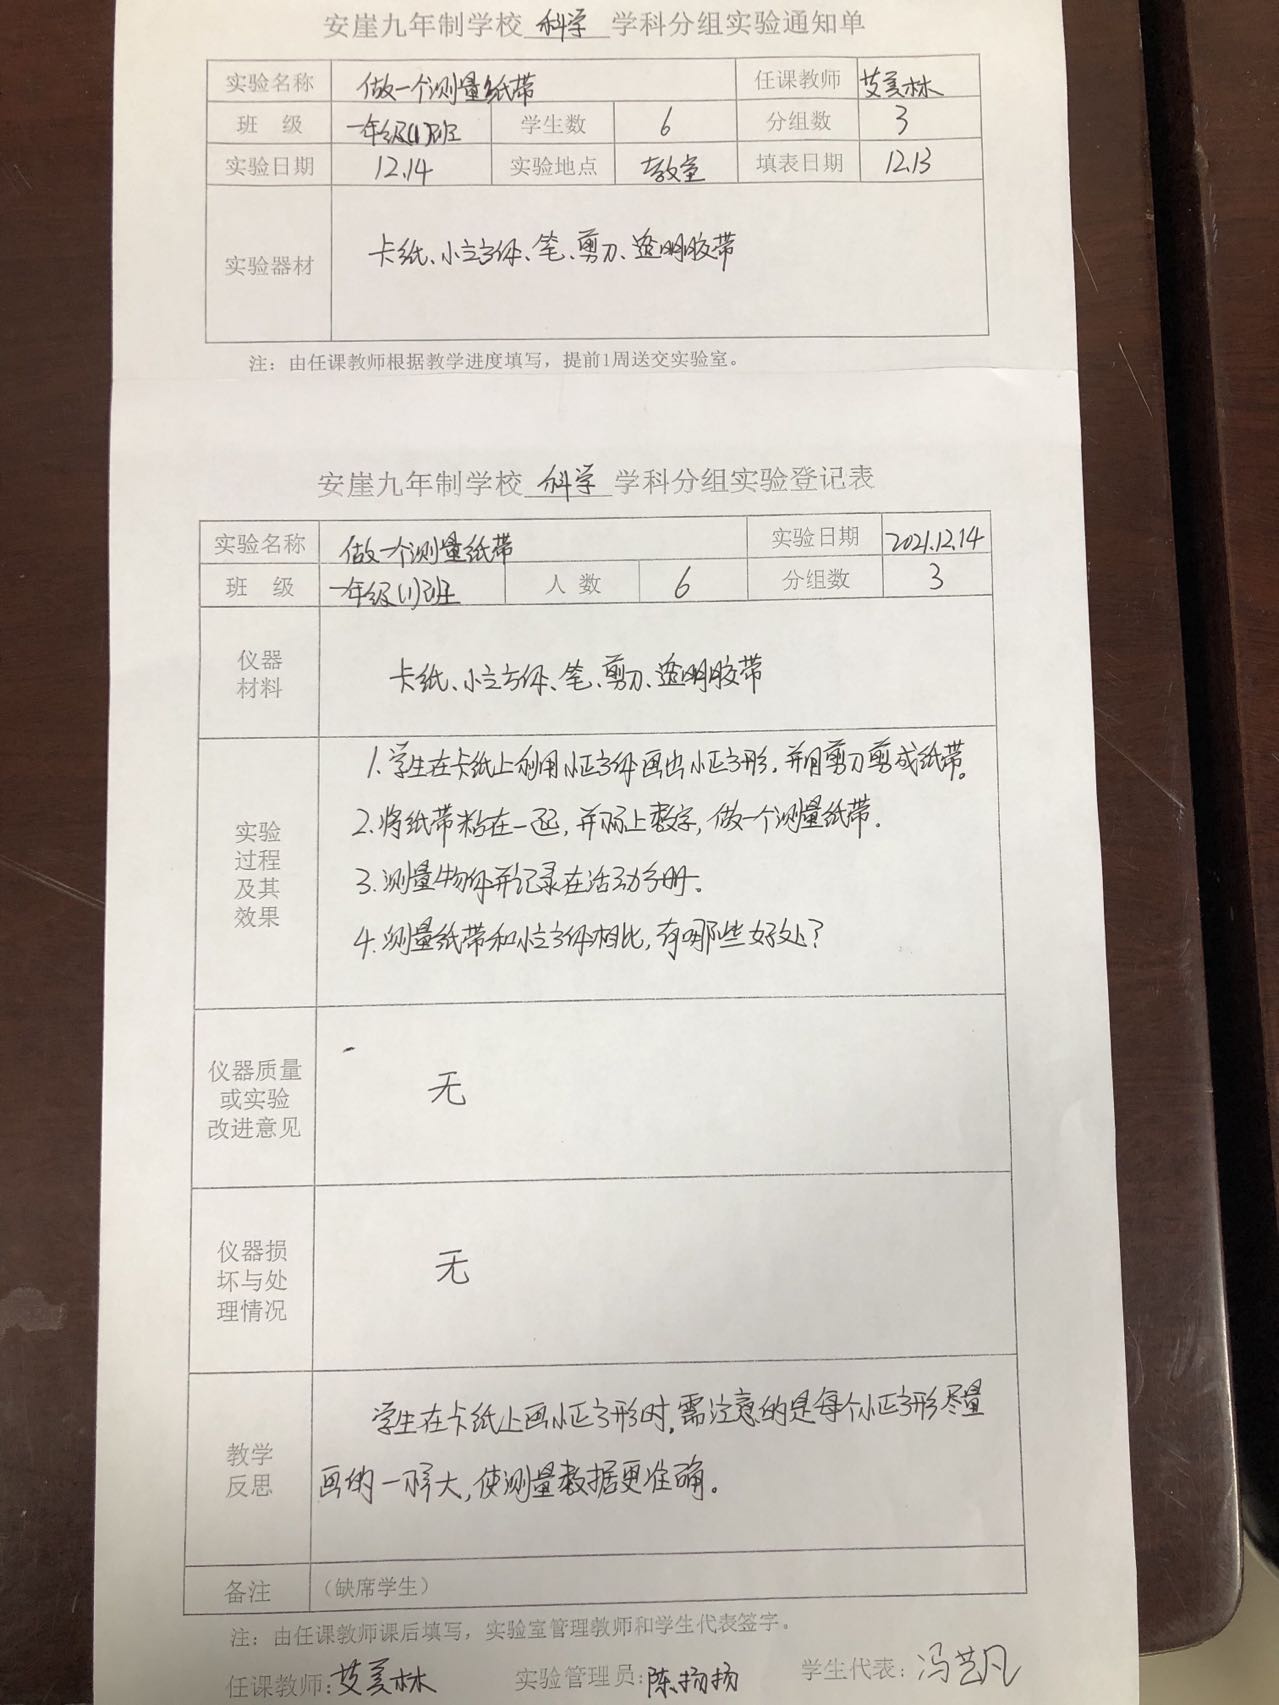 安崖九年制学校 科学 学科分组实验通知单
实验名称 做一个测量纸带 任课教师 艾美林
班 级 一年级(1)班 学生数 6 分组数 3
实验日期 12.14 实验地点 教室 填表日期 12.13
实验器材 卡纸、小立方体、笔、剪刀、透明胶带
注：由任课教师根据教学进度填写，提前1周送交实验室。
安崖九年制学校 科学 学科分组实验登记表
实验名称 做一个测量纸带 实验日期 2021.12.14
班 级 一年级(1)班 人 数 6 分组数 3
仪器
材料
卡纸、小立方体、笔、剪刀、透明胶带
实验
过程
及其
效果
1.学生在卡纸上利用小正方体画出小正方形，并用剪刀剪成纸带。
2.将纸带粘在一起，并标上数字，做一个测量纸带.
3.测量物体并记录在活动手册.
4.测量纸带和小立方体相比，有哪些好处?
仪器质量
或实验
改进意见
无
仪器损
坏与处
理情况
无
教学
反思
学生在卡纸上画小正方形时，需注意的是每个小正方形尽量
画的一样大，使测量数据更准确。
备注 （缺席学生）
注：由任课教师课后填写，实验室管理教师和学生代表签字。
任课教师：艾美林 实验管理员：陈扬扬 学生代表：冯艺凡